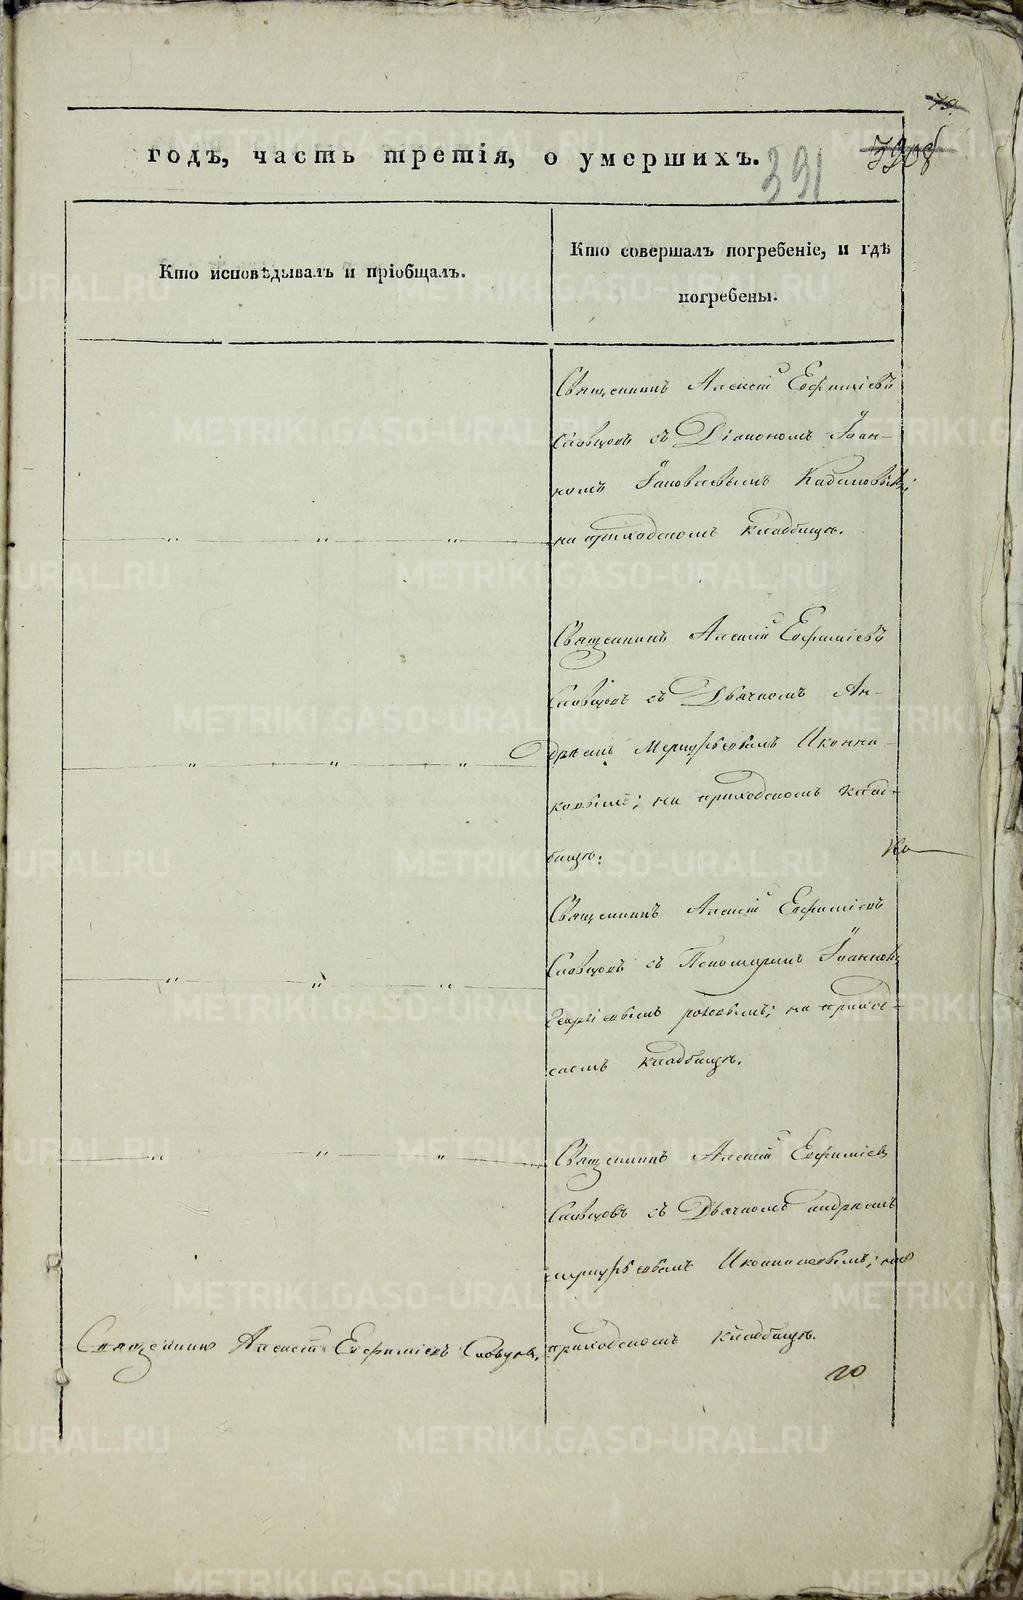 годъ, часть третія, о умершихъ.
391
Кто исповѣдывалъ и пріобщалъ.
Кто совершалъ погребеніе, и гдѣ
погребены.
Священникъ Алексій Евфиміевъ
Словцовъ съ Діакономъ Іоан-
номъ Іаковлевымъ Кадиловымъ;
на приходскомъ кладбищѣ.
Священникъ Алексій Евфиміевъ
Словцовъ съ Дьячкомъ Ан-
дреемъ Меркурьевымъ Иконни-
ковымъ; на приходскомъ клад-
бищѣ.
Священникъ Алексій Евфиміевъ
Словцовъ съ Пономаремъ Іоанномъ
Георгіевымъ на приход-
скомъ кладбищѣ.
Священникъ Алексій Евфиміевъ
Словцовъ съ Дьячкомъ Андреемъ
Меркурьевымъ Иконниковымъ; на
Священникъ Алексій Евфиміевъ Словцовъ,
приходскомъ кладбищѣ.
METRIKI.GASO-URAL.RU